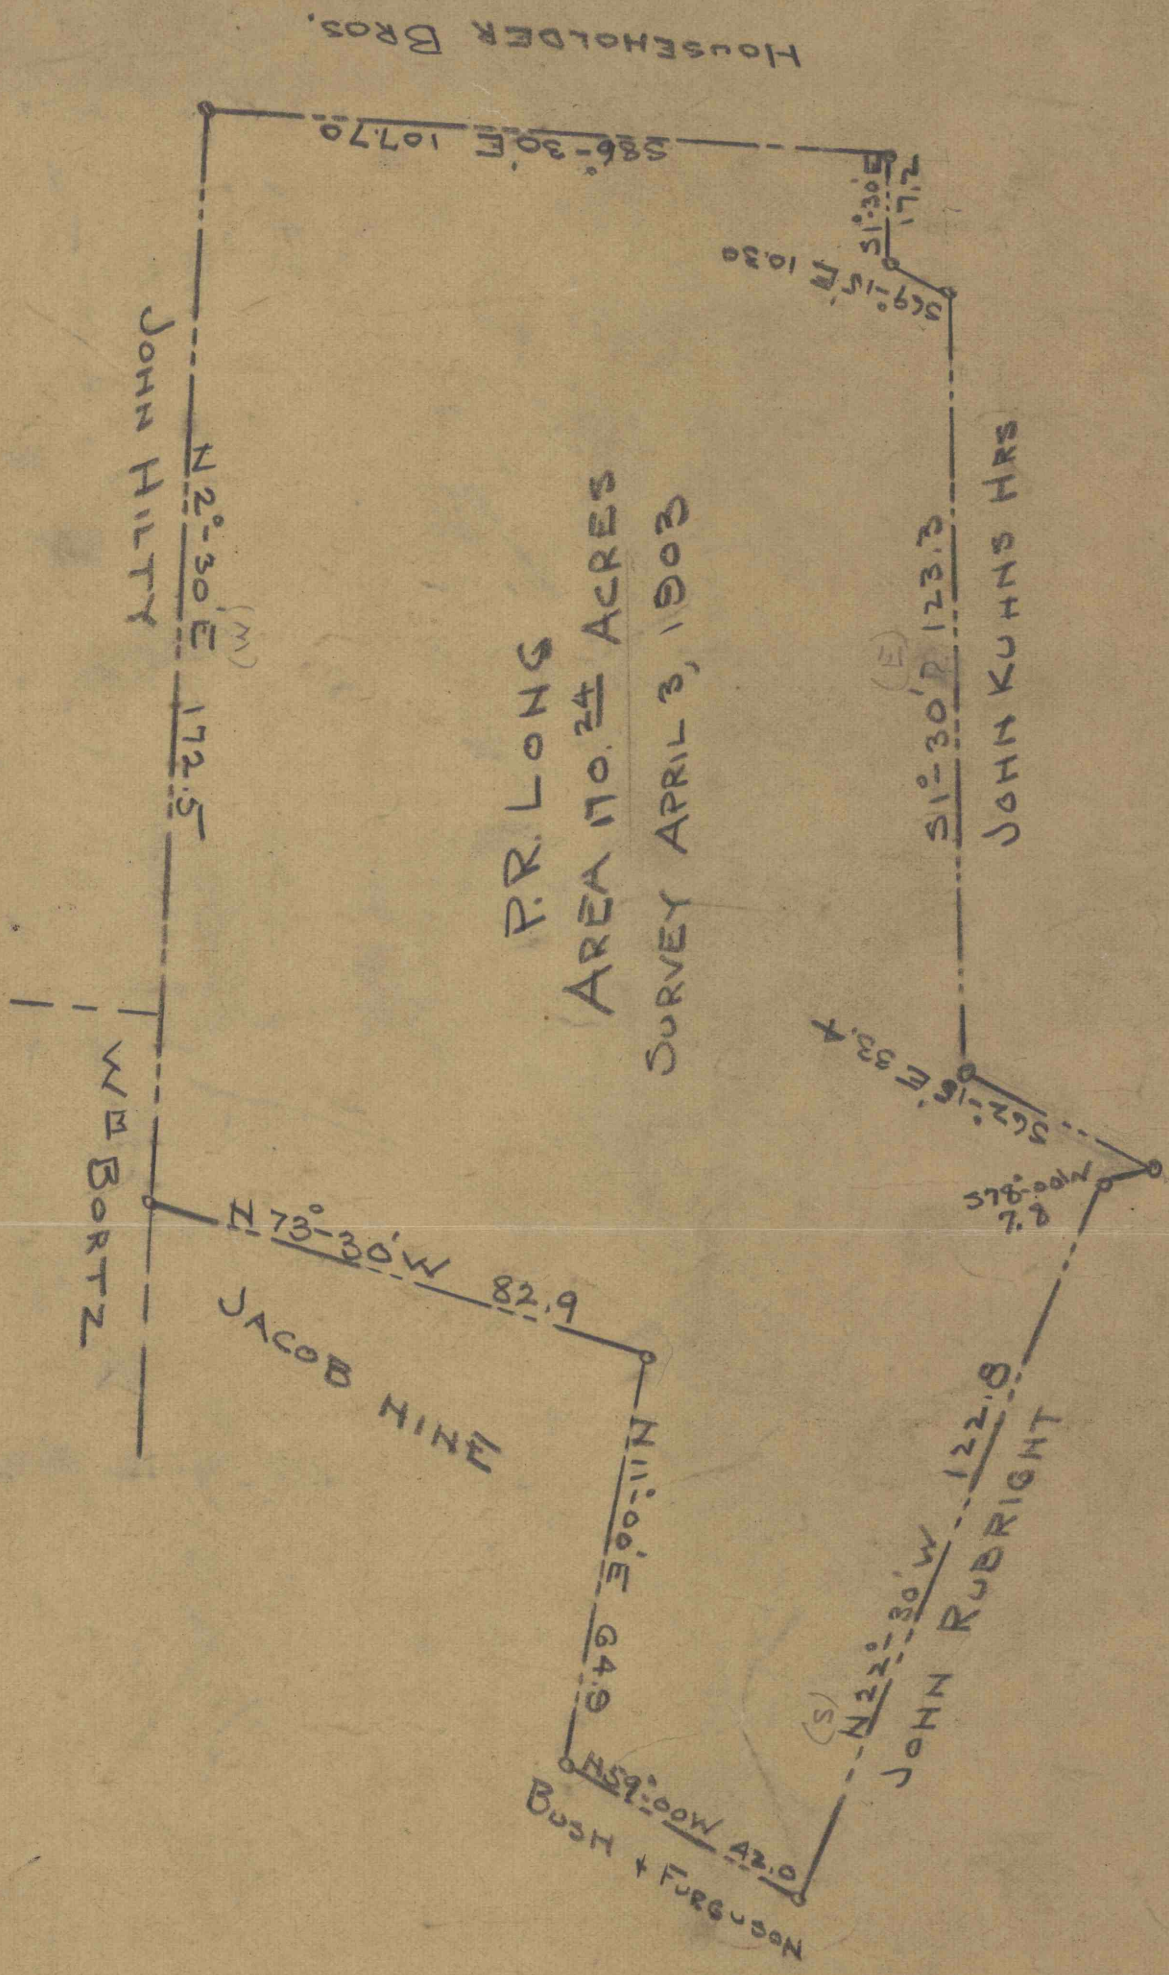 HOUSEHOLDER BROS.
S86°-30'E 107.70
S1°-30'E
17.2
S69°-15'E 10.30
JOHN HILTY
N2°-30'E 172.5
(W)
P.R. LONG
AREA 170.24 ACRES
SURVEY APRIL 3, 1903
S1°-30'E 123.3
(E)
JOHN KUHNS HRS
S62°-15'E 33.4
S78°-00'W
7.8
W E BORTZ
N73°-30'W 82.9
JACOB HINE
N11°-00'E 64.9
N22°-30'W 122.8
(S)
JOHN RUBRIGHT
N59°-00W 42.0
BUSH + FURGUSON